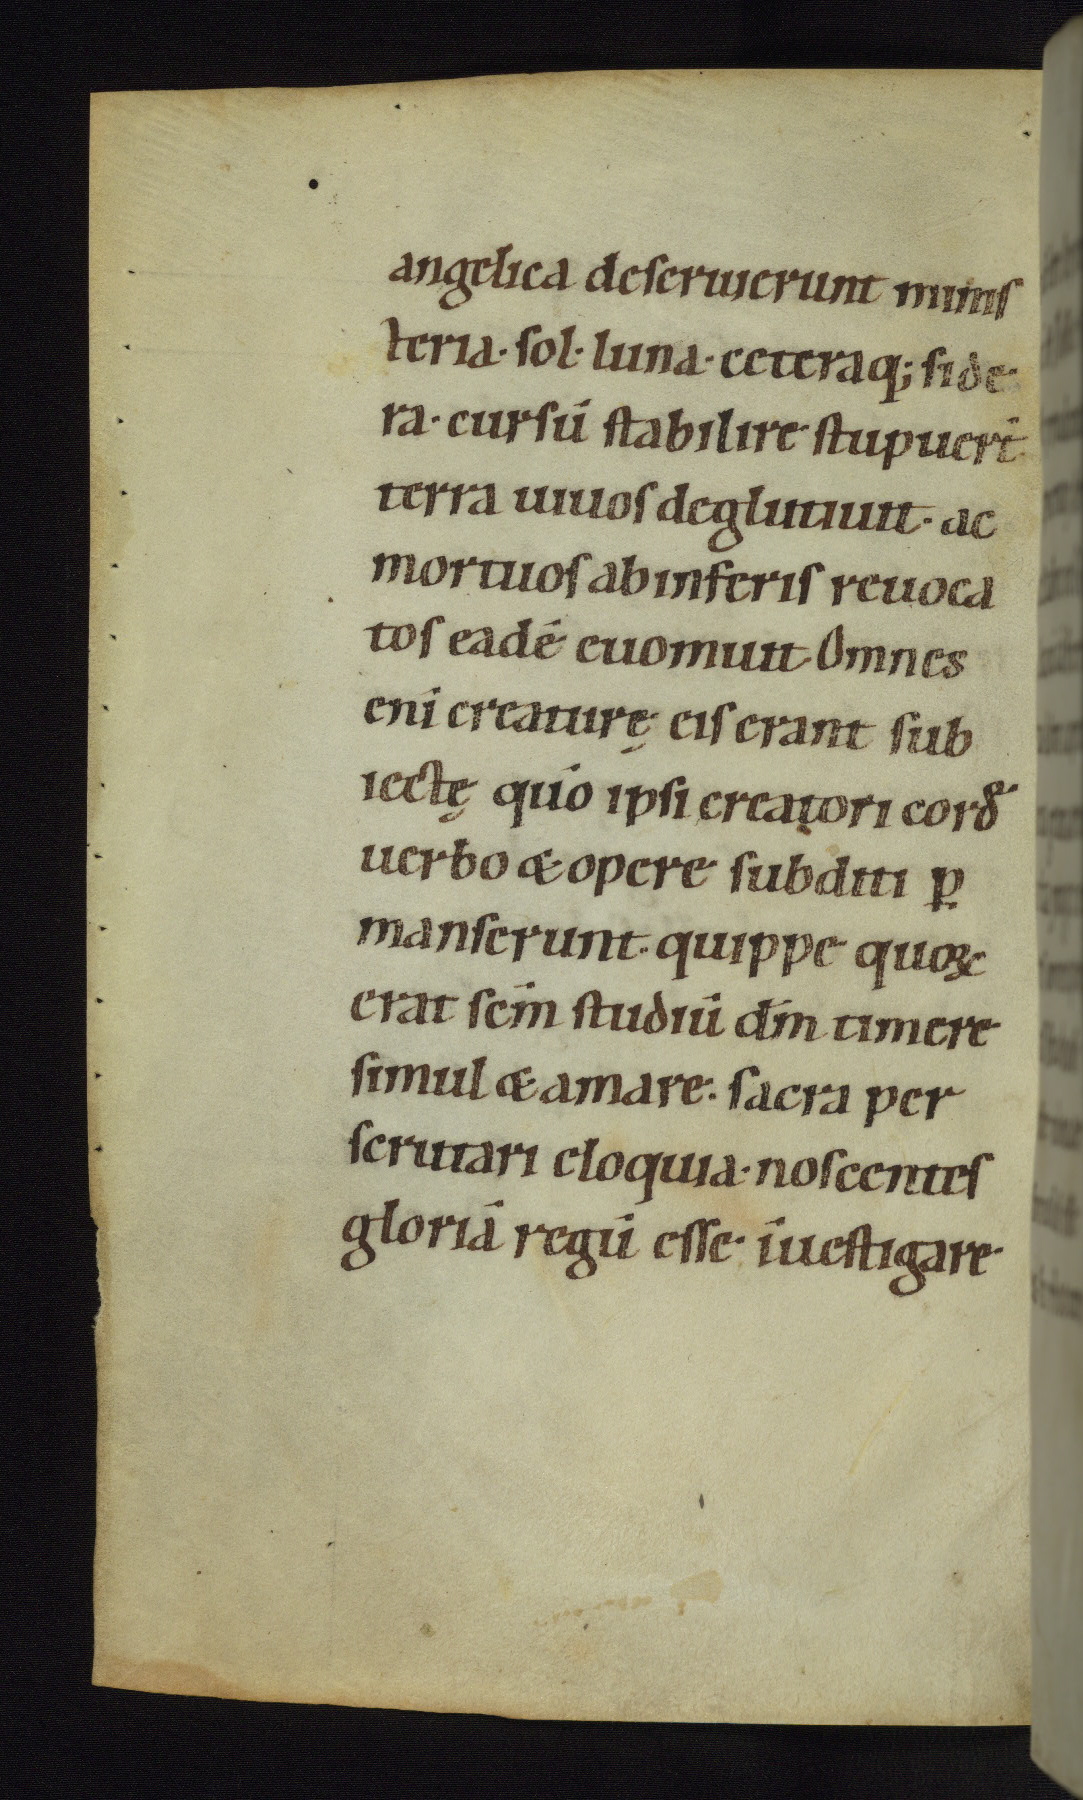 angelica deseruierunt minis
teria· sol· luna· ceteraq; side
ra· cursū stabilire stupuert̄
terra uiuos deglutiuit· ac
mortuos ab inferis reuoca
tos eadē euomuit· Omnes
eni creaturę eis erant sub
iectę quio ipsi creatori cord
uerbo & opere subditi p̱
manserunt· quippe quoꝝ
erat sēm studiū dm̄ timere
simul & amare· sacra per
scrutari eloquia· noscentes
gloriā regū esse īuestigare